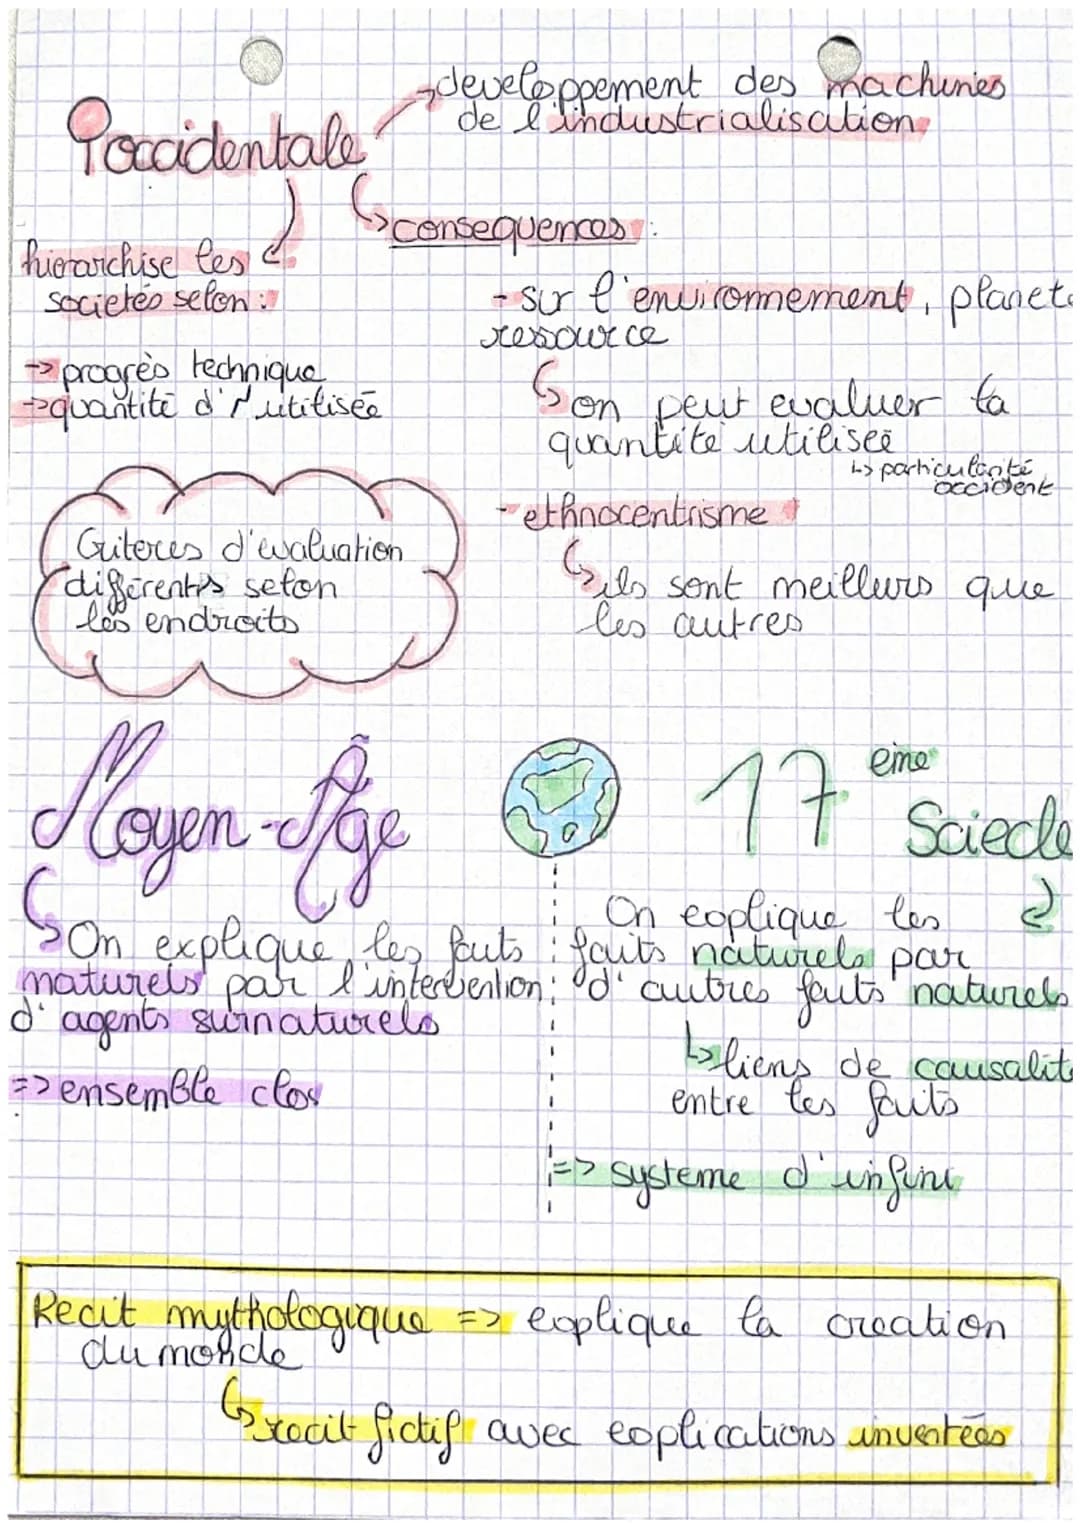 occidentale
→ developpement des machines
de l'industrialisation
hierarchise les
societés selon :
→ progrès technique
→ quantité d'N utilisée
consequences :
- sur l'environnement, planete
ressource
↳ on peut evaluer la
quantité utilisée
↳ particularité
occident
- ethnocentrisme
↳ ils sont meilleurs que
les autres
Criteres d'evaluation
differents selon
les endroits
Moyen-Âge
↳ On explique les faits
naturels par l'intervention
d'agents surnaturels
=> ensemble clos
17 eme
Sciecle
On explique les
faits naturels par
d'autres faits naturels
↳ liens de causalit
entre les faits
=> systeme d'infini
Recit mythologique => explique la creation
du monde
↳ recit fictif avec explications inventées